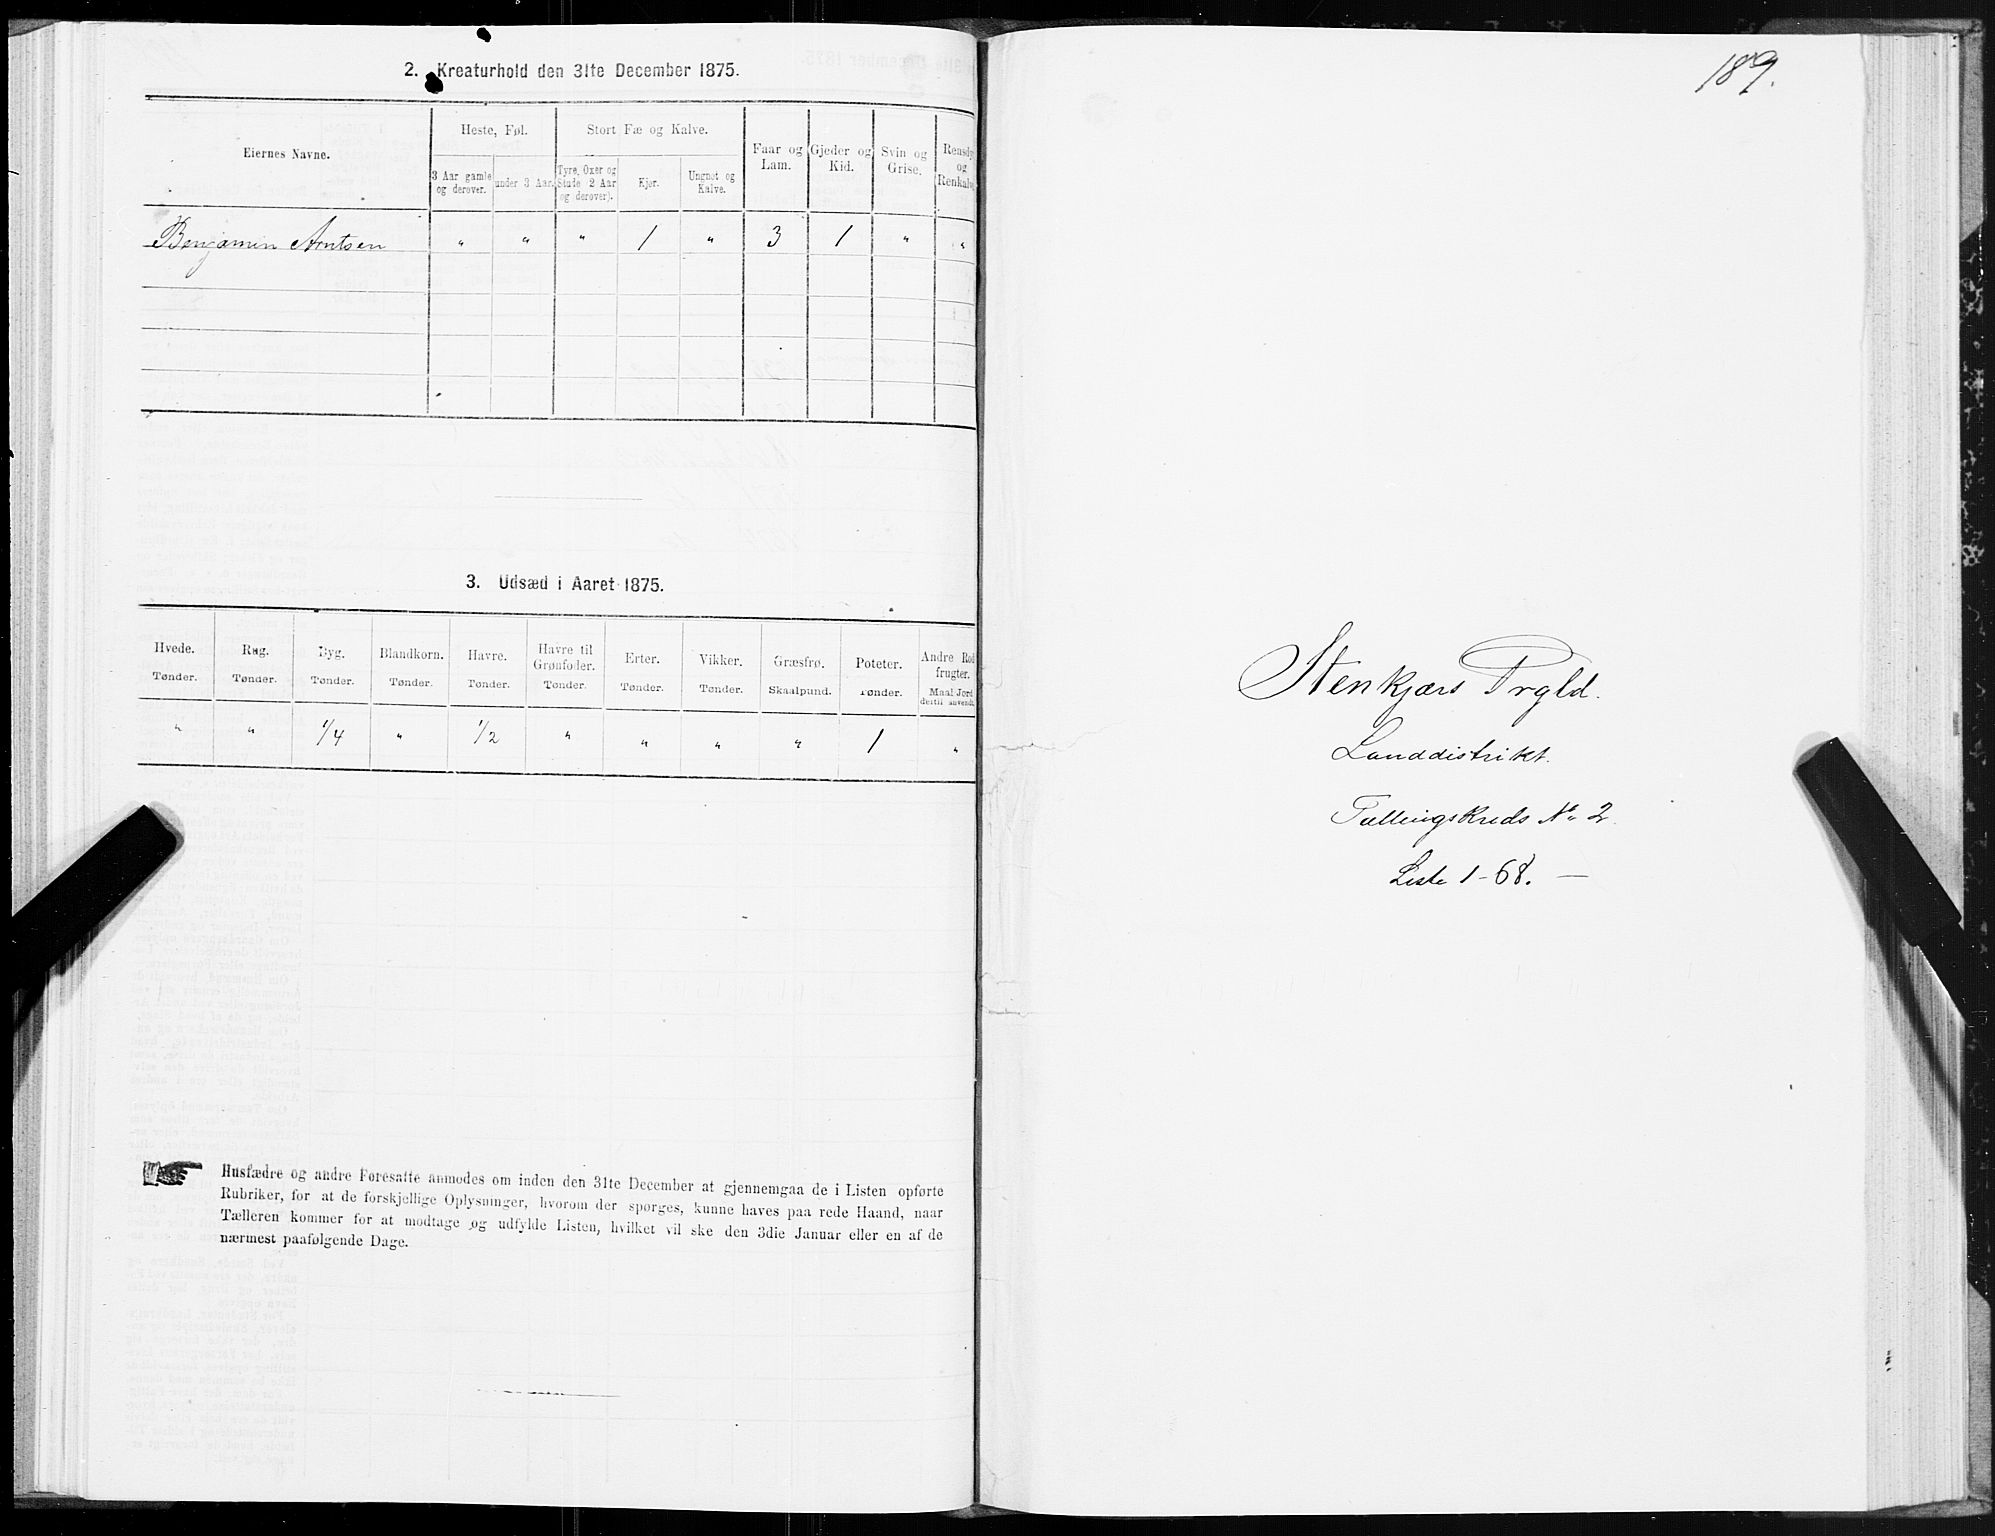 2. Kreaturhold den 31te December 1875.
Eiernes Navne.
Heste, Føl.
Stort Fæ og Kalve.
Faar og Lam.
Gjeder og Kid.
Svin og Grise.
Rensdy og Renkalv
3 Aar gamle og derover.
under 3 Aar.
Tyre, Oxer og Stude (2 Aar og derover).
Kjør.
Ungnøt og Kalve.
Benjamin Arntsen " " " 1 " 3 1 " "
3. Udsæd i Aaret 1875.
Hvede. Rug. Byg. Blandkorn. Havre. Havre til Grønfoder. Erter. Vikker. Græsfrø. Poteter. Andre Rod frugter.
Tønder. Tønder. Tønder. Tønder. Tønder. Tønder. Tønder. Tønder. Skaalpund. Tønder. Maal Jord dertil anvendt.
" " 1/4 " 1/2 " " " " 1 "
Husfædre og andre Foresatte anmodes om inden den 31te December at gjennemgaa de i Listen opførte
Rubriker, for at de forskjellige Oplysninger, hvorom der spørges, kunne haves paa rede Haand, naar
Tælleren kommer for at modtage og udfylde Listen, hvilket vil ske den 3die Januar eller en af de
nærmest paafølgende Dage.
189.
Stenkjærs Prgld.
Landdistrikt.
Tællingskreds No 2.
Liste 1-68. —